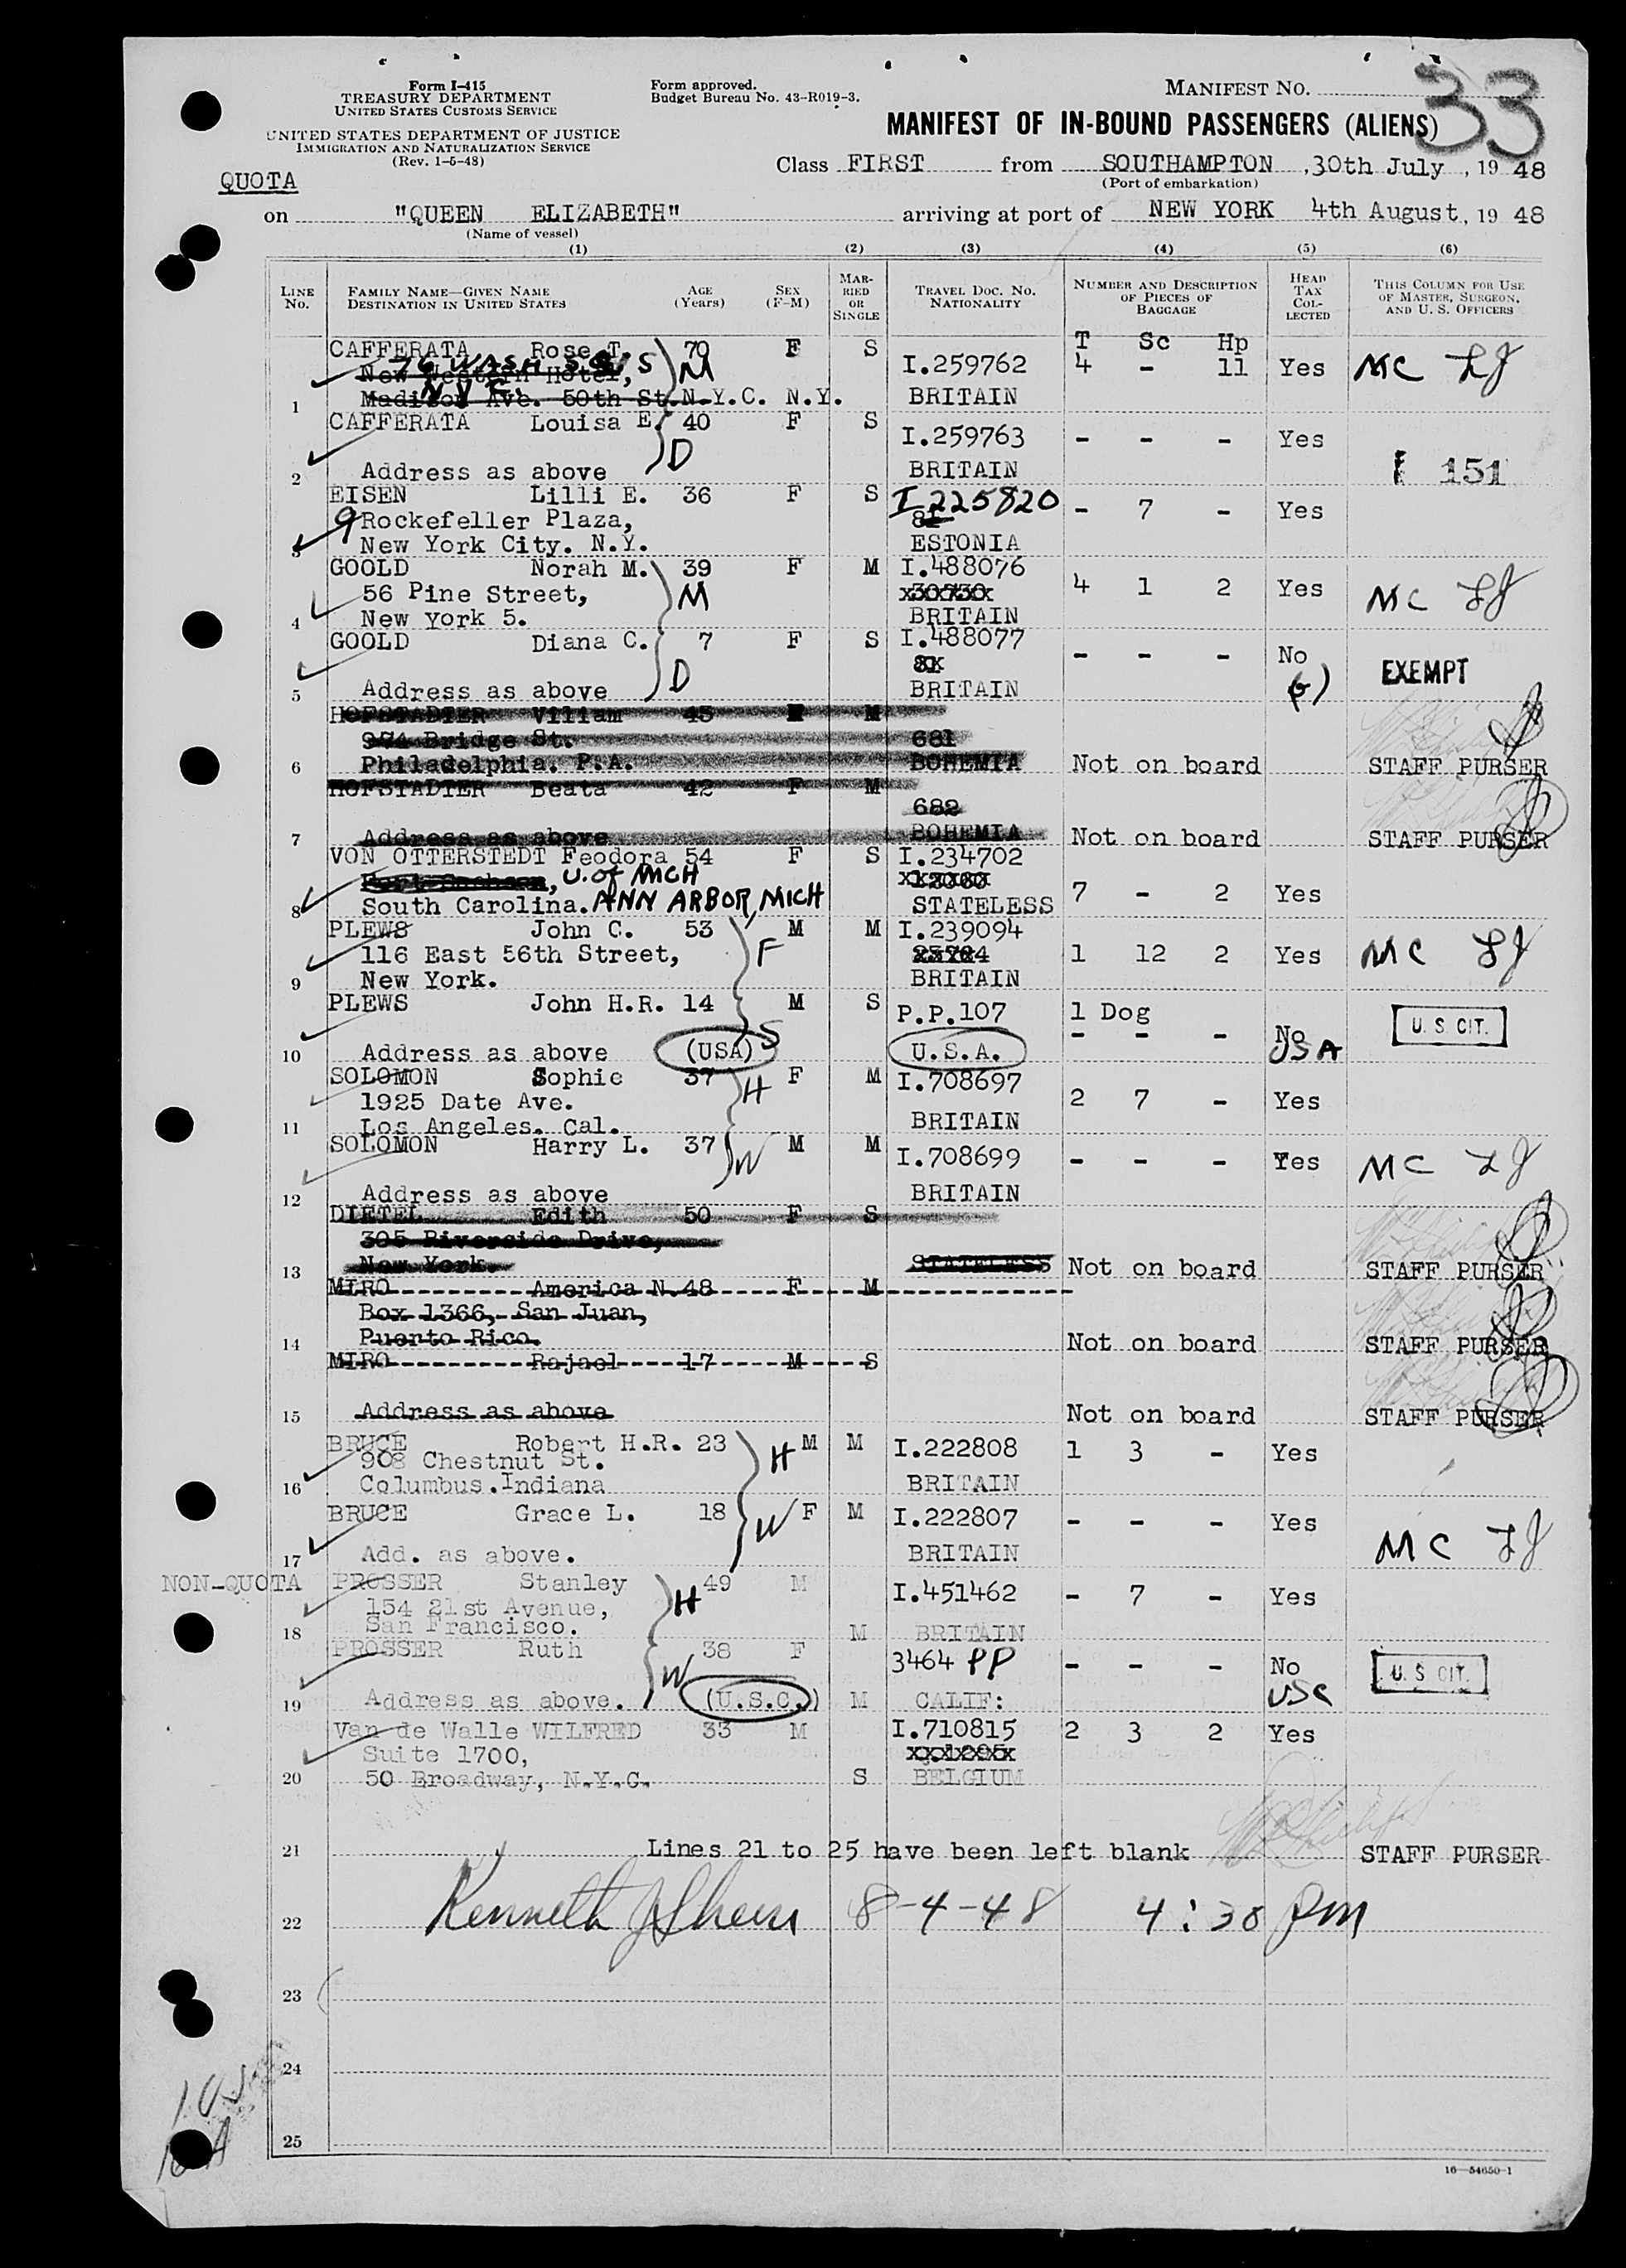 Form I-415
TREASURY DEPARTMENT
UNITED STATES CUSTOMS SERVICE
UNITED STATES DEPARTMENT OF JUSTICE
IMMIGRATION AND NATURALIZATION SERVICE
(Rev. 1-5-48)
Form approved.
Budget Bureau No. 43-R019-3.
MANIFEST NO. 33
MANIFEST OF IN-BOUND PASSENGERS (ALIENS)
Class FIRST from SOUTHAMPTON, 30th July, 1948
(Port of embarkation)
QUOTA
on "QUEEN ELIZABETH" arriving at port of NEW YORK 4th August, 1948
(Name of vessel)
(1) (2) (3) (4) (5) (6)
LINE NO. FAMILY NAME—GIVEN NAME DESTINATION IN UNITED STATES AGE (Years) SEX (F-M) MARRIED OR SINGLE TRAVEL DOC. NO. NATIONALITY NUMBER AND DESCRIPTION OF PIECES OF BAGGAGE HEAD TAX COLLECTED THIS COLUMN FOR USE OF MASTER, SURGEON, AND U. S. OFFICERS
T Sc Hp
CAFFERATA Rose T. 70 F S I.259762 4 - 11 Yes MC LJ
76 WASH SQ. S M
New Western Hotel,
N Y C.
1 Madison Ave. 50th St.N.Y.C. N.Y. BRITAIN
CAFFERATA Louisa E. 40 F S I.259763 - - - Yes
D
2 Address as above BRITAIN 151
EISEN Lilli E. 36 F S I 225820 - 7 - Yes
9 Rockefeller Plaza,
3 New York City. N.Y. ESTONIA
GOOLD Norah M. 39 F M I.488076 4 1 2 Yes MC LJ
56 Pine Street, M
4 New York 5. BRITAIN
GOOLD Diana C. 7 F S I.488077 - - - No EXEMPT
D
5 Address as above BRITAIN
HOFSTADTER Viliam 45 M M
974 Bridge St. 681
6 Philadelphia. P.A. BOHEMIA Not on board STAFF PURSER
HOFSTADTER Beata 42 F M
682
7 Address as above BOHEMIA Not on board STAFF PURSER
VON OTTERSTEDT Feodora 54 F S I.234702 7 - 2 Yes
U. of MICH
8 South Carolina. ANN ARBOR, MICH STATELESS
PLEWS John C. 53 M M I.239094 1 12 2 Yes MC LJ
116 East 56th Street, F
9 New York. BRITAIN
PLEWS John H.R. 14 M S P.P.107 1 Dog U. S. CIT.
S - - - No
10 Address as above (USA) U.S.A. USA
SOLOMON Sophie 37 F M I.708697 2 7 - Yes
1925 Date Ave. H
11 Los Angeles. Cal. BRITAIN
SOLOMON Harry L. 37 M M I.708699 - - - Yes MC LJ
W
12 Address as above BRITAIN
DIETEL Edith 50 F S
305 Riverside Drive,
13 New York. STATELESS Not on board STAFF PURSER
MIRO America N. 48 F M
Box 1366, San Juan,
14 Puerto Rico. Not on board STAFF PURSER
MIRO Rajael 17 M S
15 Address as above Not on board STAFF PURSER
BRUCE Robert H.R. 23 M M I.222808 1 3 - Yes
908 Chestnut St. H
16 Columbus.Indiana BRITAIN
BRUCE Grace L. 18 F M I.222807 - - - Yes MC LJ
W
17 Add. as above. BRITAIN
NON-QUOTA PROSSER Stanley 49 M I.451462 - 7 - Yes
154 21st Avenue, H
18 San Francisco. M BRITAIN
PROSSER Ruth 38 F 3464 PP - - - No U. S. CIT.
W USC
19 Address as above. (U.S.C.) M CALIF:
Van de Walle WILFRED 33 M I.710815 2 3 2 Yes
Suite 1700,
20 50 Broadway, N.Y.C. S BELGIUM
21 Lines 21 to 25 have been left blank STAFF PURSER
22 Kenneth J Sheen 8-4-48 4:30 pm
23
24
25
16—54650-1